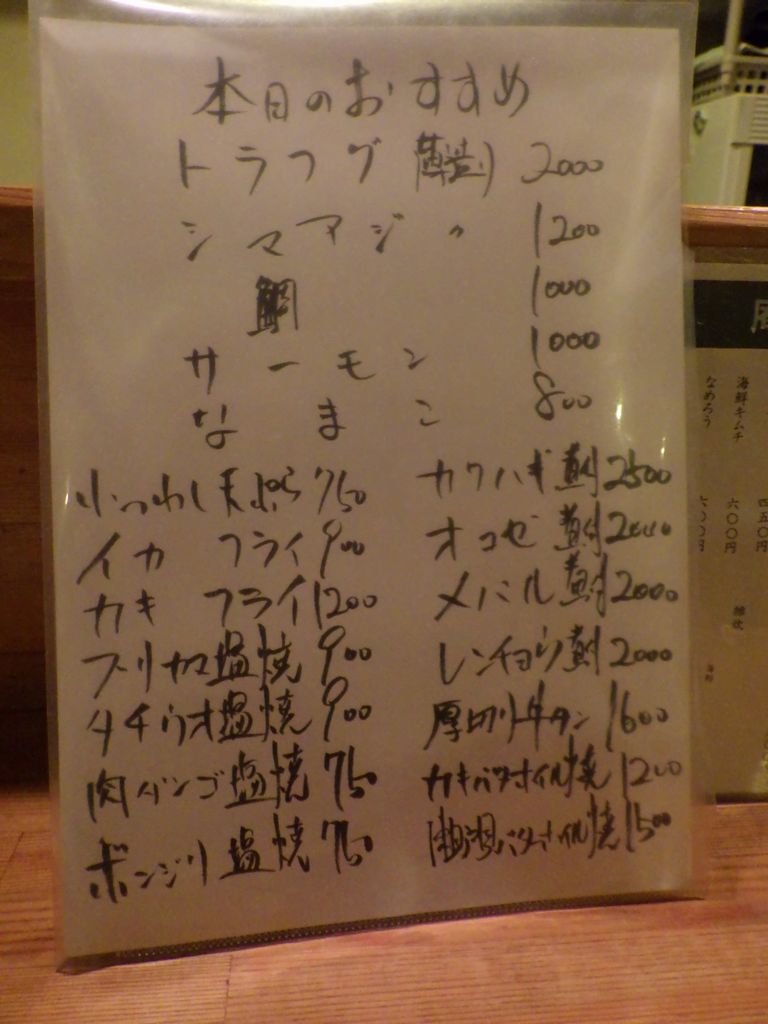 本日のおすすめ
トラフグ(薄造り) 2000
シマアジ 〃 1200
鯛 1000
サーモン 1000
なまこ 800
750
イカ フライ 900
カキ フライ 1200
ブリカマ塩焼 900
タチウオ塩焼 900
肉 塩焼 750
ボンジリ塩焼 750
カワハギ 2500
オコゼ 2000
メバル 2000
レンチョウ 2000
厚切り牛タン 1600
カキバタホイル焼 1200
バタホイル焼 1500
海鮮キムチ 六〇〇円
なめろう 六〇〇円
四五〇円
雑炊
海鮮